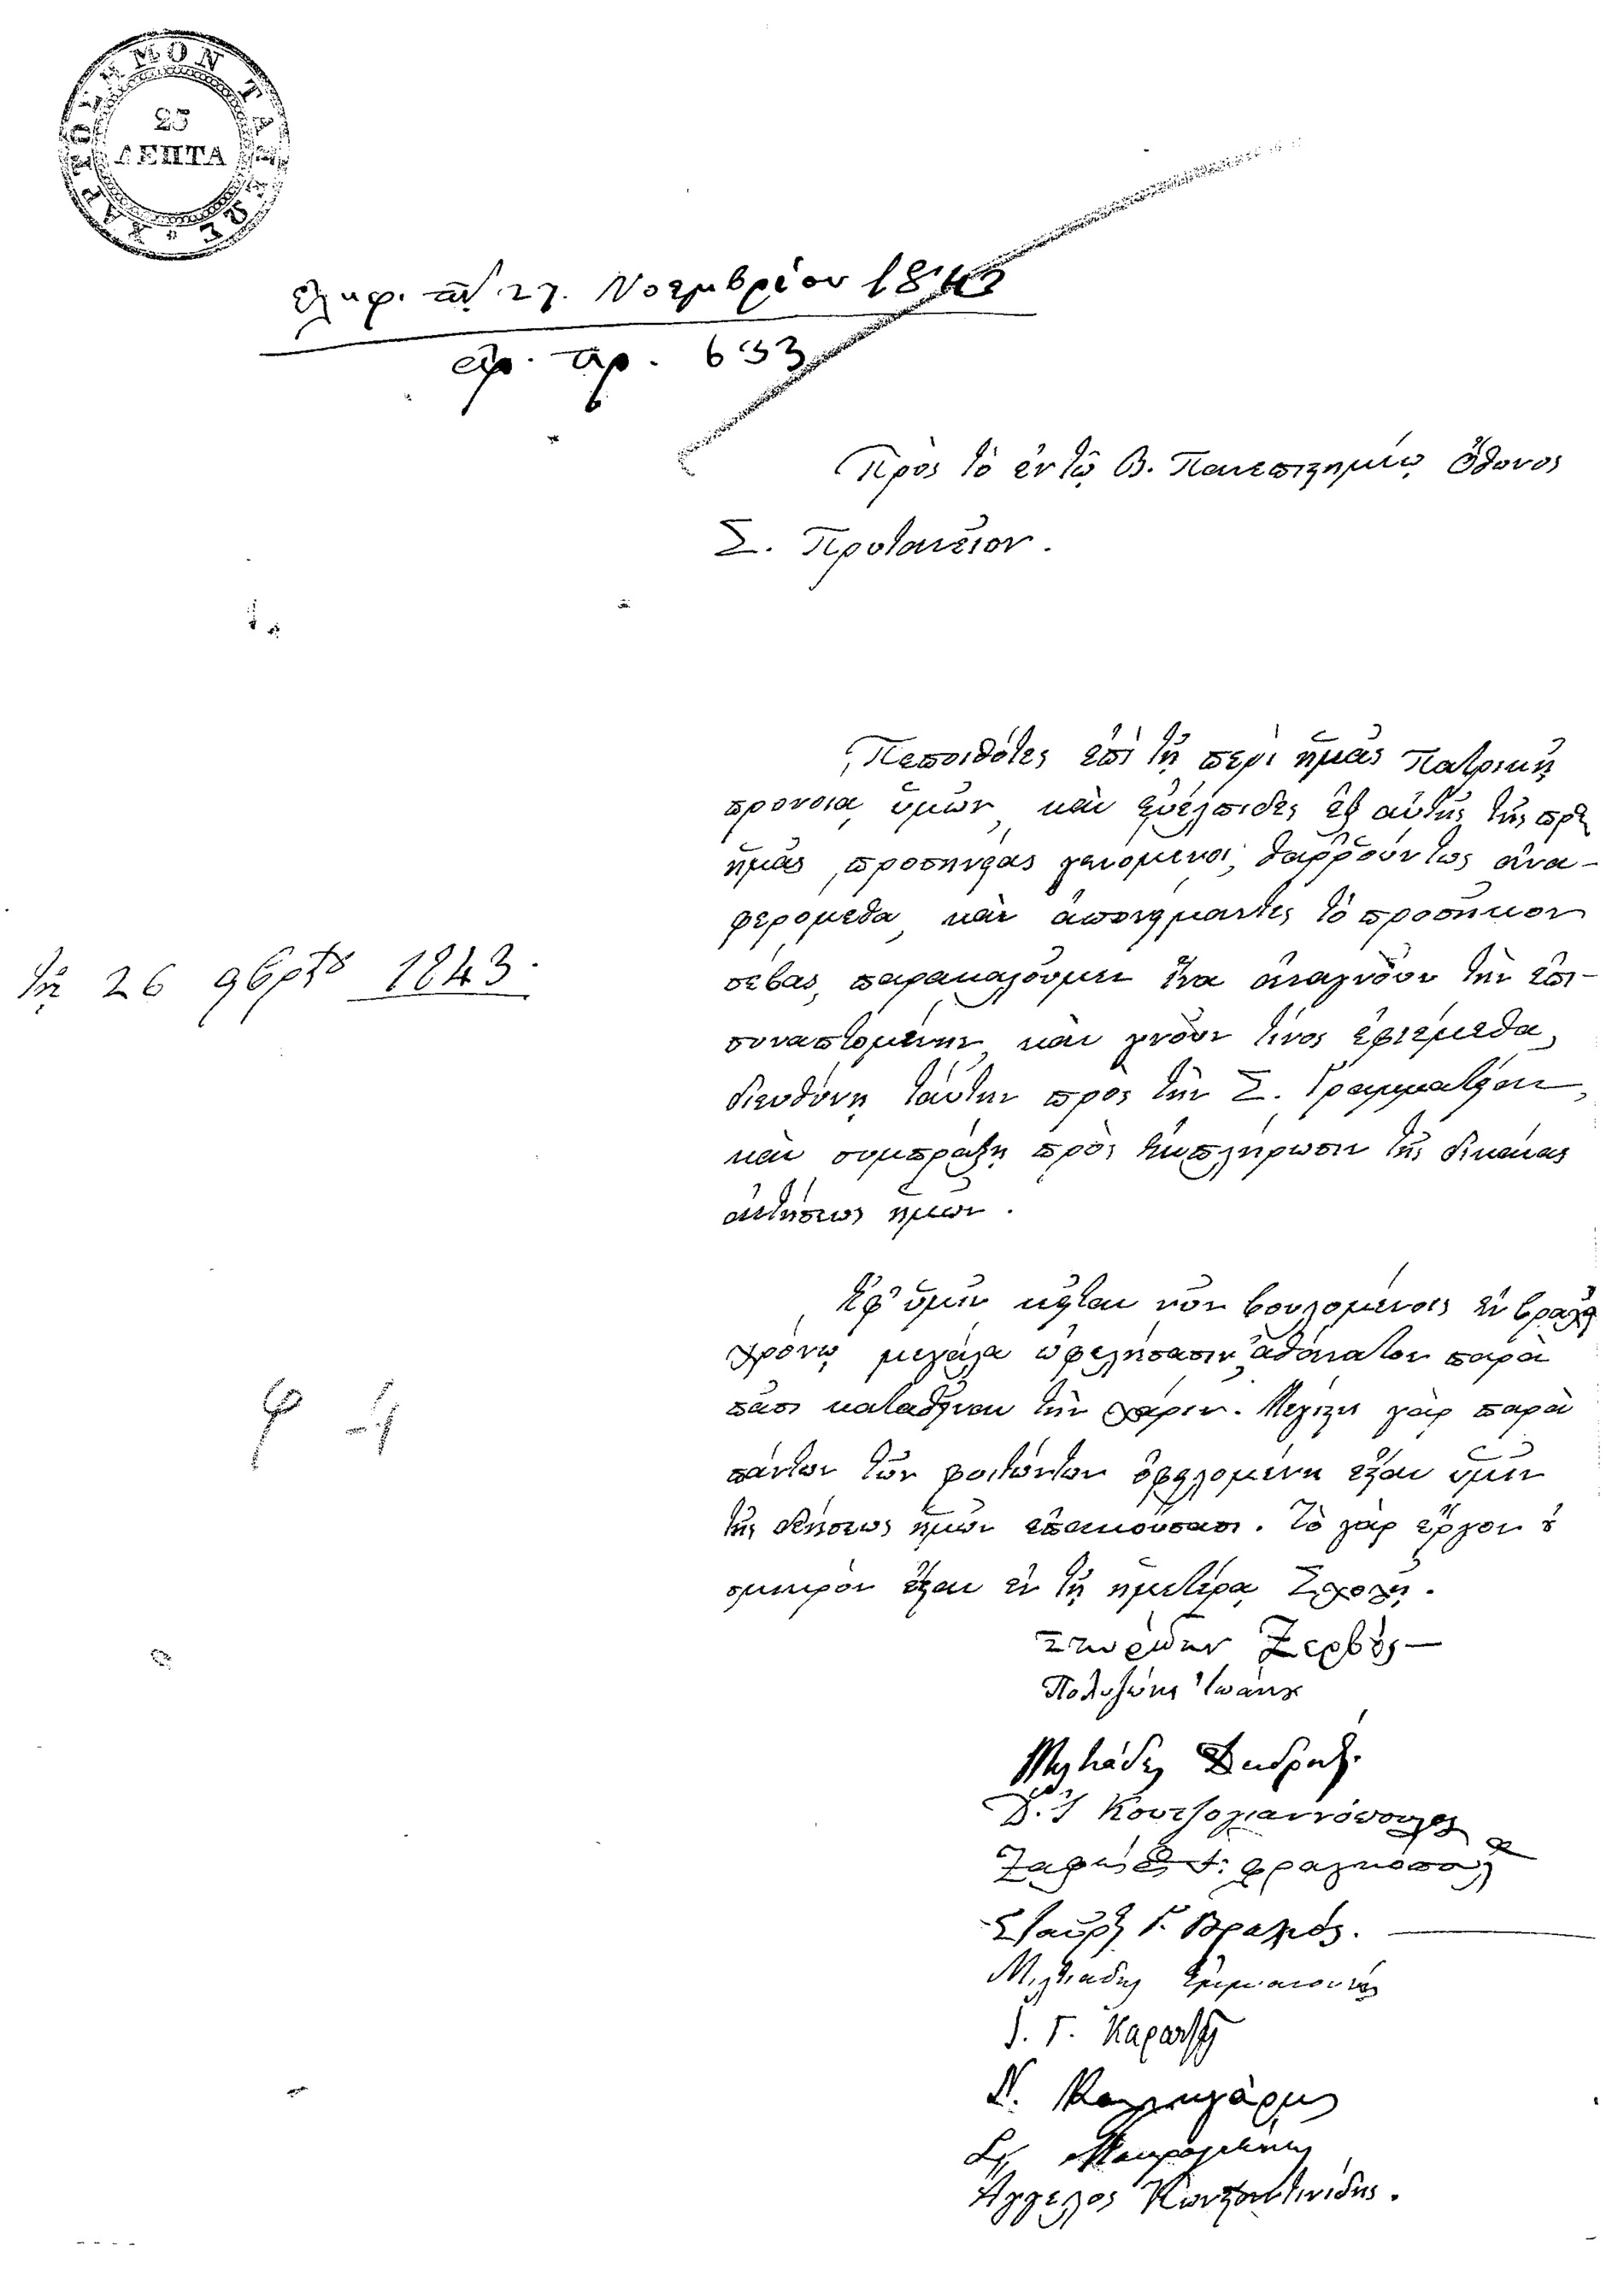 ΧΑΡΤΟΣΗΜΟΝ ΤΑΞΕΩΣ
25
ΛΕΠΤΑ
ἐλήφ. τῇ 27. Νοεμβρίου 1843
ἀρ. πρ. 633
Πρὸς τὸ ἐν τῷ Β. Πανεπιστημίῳ Ὄθωνος
Σ. Πρυτανεῖον.
Πεποιθότες ἐπὶ τῇ περὶ ἡμᾶς Πατρικῇ
προνοίᾳ ὑμῶν, καὶ εὐέλπιδες ἐξ αὐτῆς τῆς πρὸς
ἡμᾶς προσηνείας γενόμενοι, θαῤῥούντως ἀνα-
φερόμεθα, καὶ ἀπονείμαντες τὸ προσῆκον
σέβας, παρακαλοῦμεν ἵνα ἀναγνὸν τὴν ἐπι-
συναπτομένην, καὶ γνὸν τίνος ἐφιέμεθα,
διευθύνῃ ταύτην πρὸς τὴν Σ. Γραμματείαν,
καὶ συμπράξῃ πρὸς ἐκπλήρωσιν τῆς δικαίας
αἰτήσεως ἡμῶν.
τῇ 26 9βρίου 1843.
Ἐφ' ὑμῖν κεῖται νῦν βουλομένοις ἐν βραχεῖ
χρόνῳ μεγάλα ὠφελήσασιν ἀθάνατον παρὰ
πᾶσι καταθεῖναι τὴν χάριν. Μεγίστη γὰρ παρὰ
πάντων τῶν φοιτώντων ὀφειλομένη ἔσται ὑμῖν
τῆς δεήσεως ἡμῶν ἐπακούσασι. Τὸ γὰρ ἔργον οὐ
σμικρὸν ἔσται ἐν τῇ ἡμετέρᾳ Σχολῇ.
Σπυρίδων Ζερβός
Πολυζώης Ἰωάνν
Μιλτιάδης
Δ. Ἰ Κουτζογιαννόπουλος
Σταῦρος Γ.
Μιλτιάδης Ἐμμανουήλ
Ι. Γ. Καρατζᾶς
Ν. Καλλιγάρης
Ἄγγελος Κωνσταντινίδης.